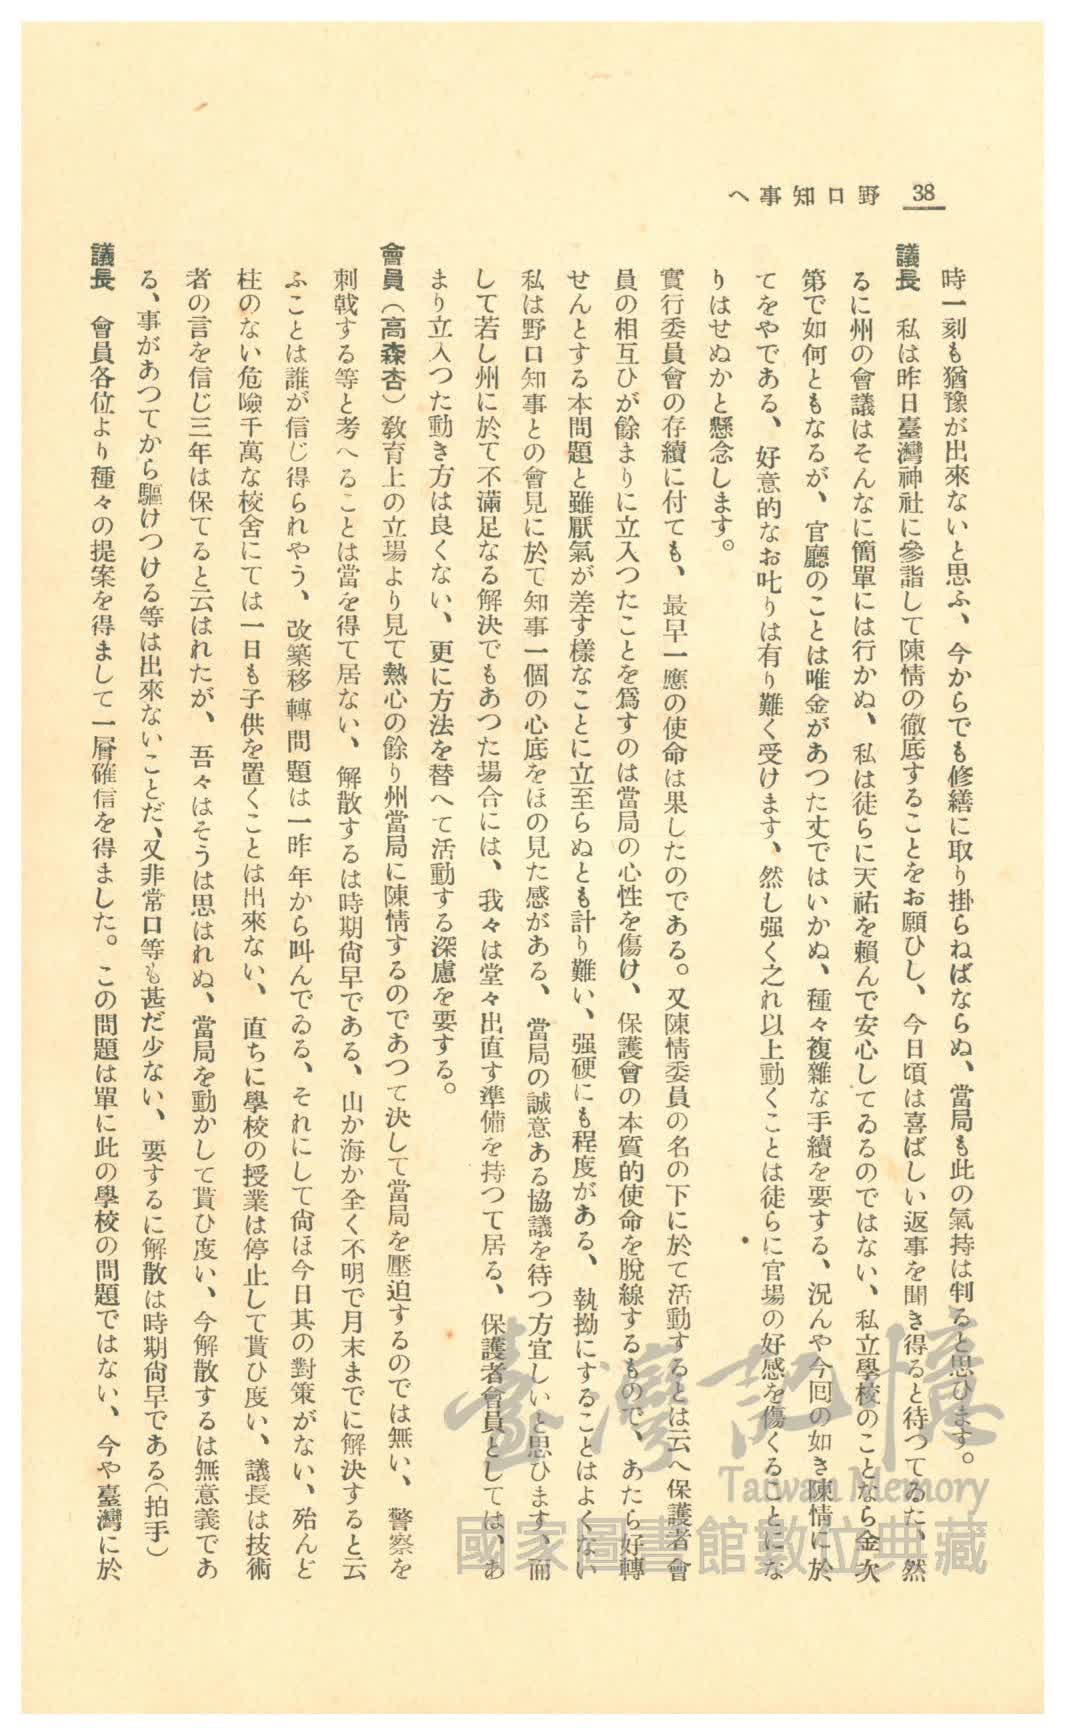 38 野口知事へ
時一刻も猶豫が出來ないと思ふ、今からでも修繕に取り掛らねばならぬ、當局も此の氣持は判ると思ひます。
議長　私は昨日臺灣神社に參詣して陳情の徹底することをお願ひし、今日頃は喜ばしい返事を聞き得ると待つてゐた、然
るに州の會議はそんなに簡單には行かぬ、私は徒らに天祐を賴んで安心してゐるのではない、私立學校のことなら金次
第で如何ともなるが、官廳のことは唯金があつた丈ではいかぬ、種々複雜な手續を要する、況んや今回の如き陳情に於
てをやである、好意的なお叱りは有り難く受けます、然し强く之れ以上動くことは徒らに官場の好感を傷くることにな
りはせぬかと懸念します。
實行委員會の存續に付ても、最早一應の使命は果したのである。又陳情委員の名の下に於て活動するとは云へ保護者會
員の相互ひが餘まりに立入つたことを爲すのは當局の心性を傷け、保護會の本質的使命を脫線するもので、あたら好轉
せんとする本問題と雖厭氣が差す樣なことに立至らぬとも計り難い、强硬にも程度がある、執拗にすることはよくない
私は野口知事との會見に於て知事一個の心底をほの見た感がある、當局の誠意ある協議を待つ方宜しいと思ひます、而
して若し州に於て不滿足なる解決でもあつた場合には、我々は堂々出直す準備を持つて居る、保護者會員としては、あ
まり立入つた動き方は良くない、更に方法を替へて活動する深慮を要する。
會員（高森杏）敎育上の立場より見て熱心の餘り州當局に陳情するのであつて決して當局を壓迫するのでは無い、警察を
刺戟する等と考へることは當を得て居ない、解散するは時期尙早である、山か海か全く不明で月末までに解決すると云
ふことは誰が信じ得られやう、改築移轉問題は一昨年から叫んでゐる、それにして尙ほ今日其の對策がない、殆んど
柱のない危險千萬な校舍にては一日も子供を置くことは出來ない、直ちに學校の授業は停止して貰ひ度い、議長は技術
者の言を信じ三年は保てると云はれたが、吾々はそうは思はれぬ、當局を動かして貰ひ度い、今解散するは無意義であ
る、事があつてから驅けつける等は出來ないことだ、又非常口等も甚だ少ない、要するに解散は時期尙早である（拍手）
議長　會員各位より種々の提案を得まして一層確信を得ました。この問題は單に此の學校の問題ではない、今や臺灣に於
臺灣記憶
Taiwan Memory
國家圖書館數位典藏